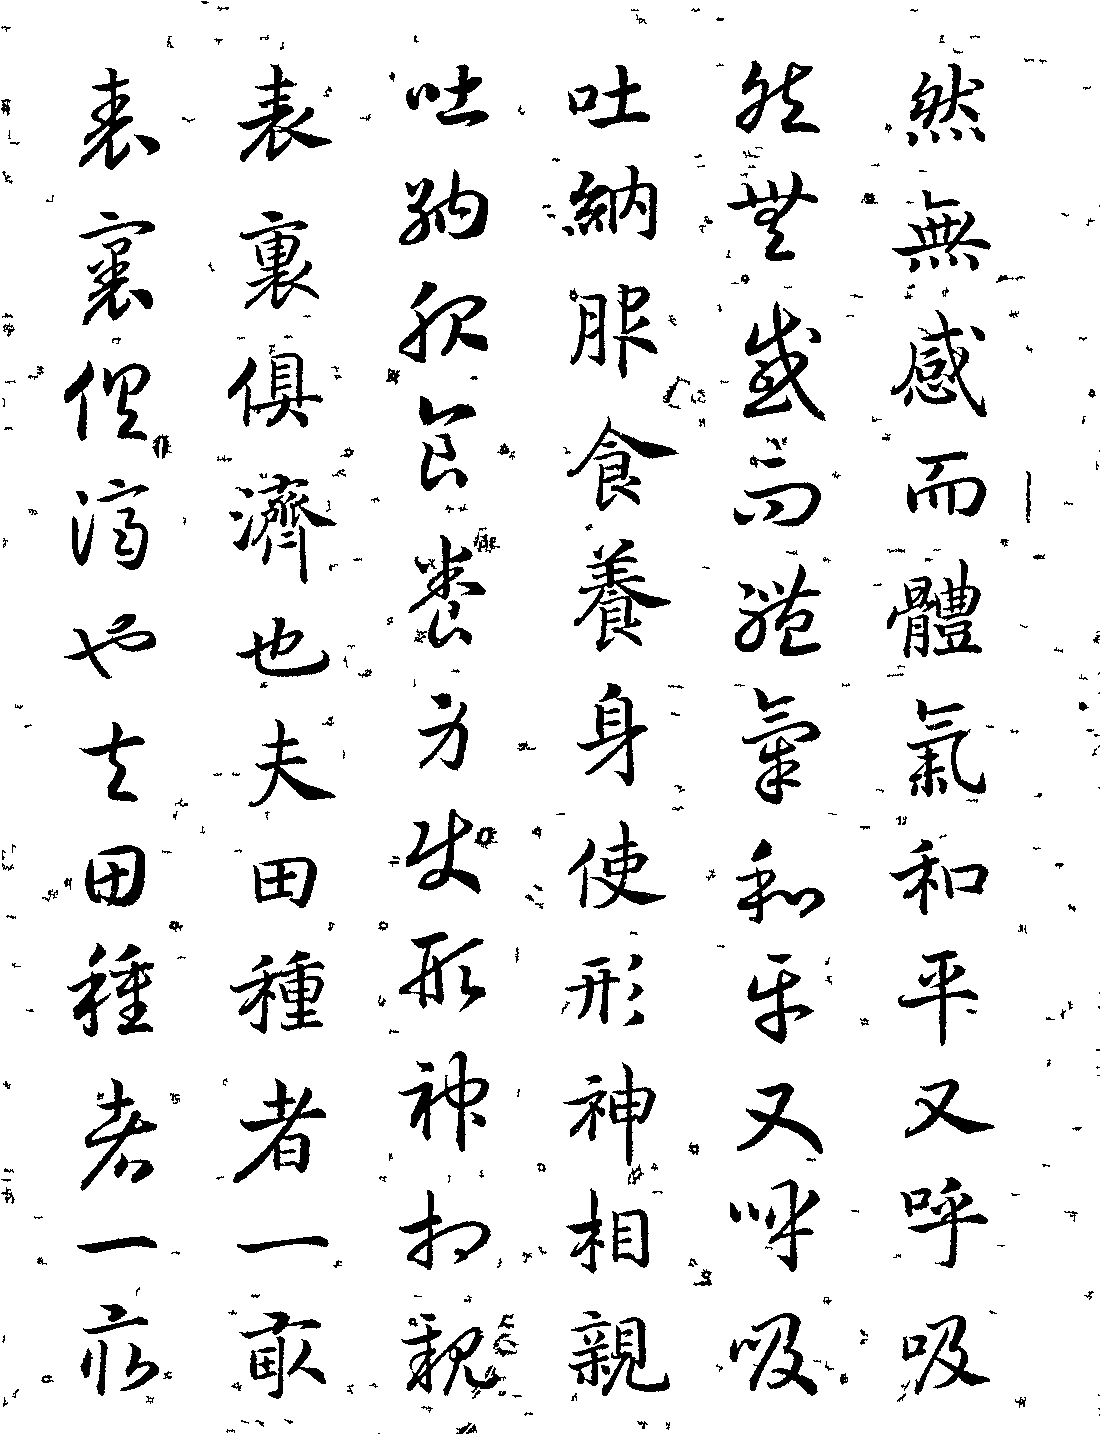 然無感而體氣和平又呼吸
然無感而體氣和平又呼吸
吐納服食養身使形神相親
吐納服食養身使形神相親
表裏俱濟也夫田種者一畝
表裏俱濟也夫田種者一畝